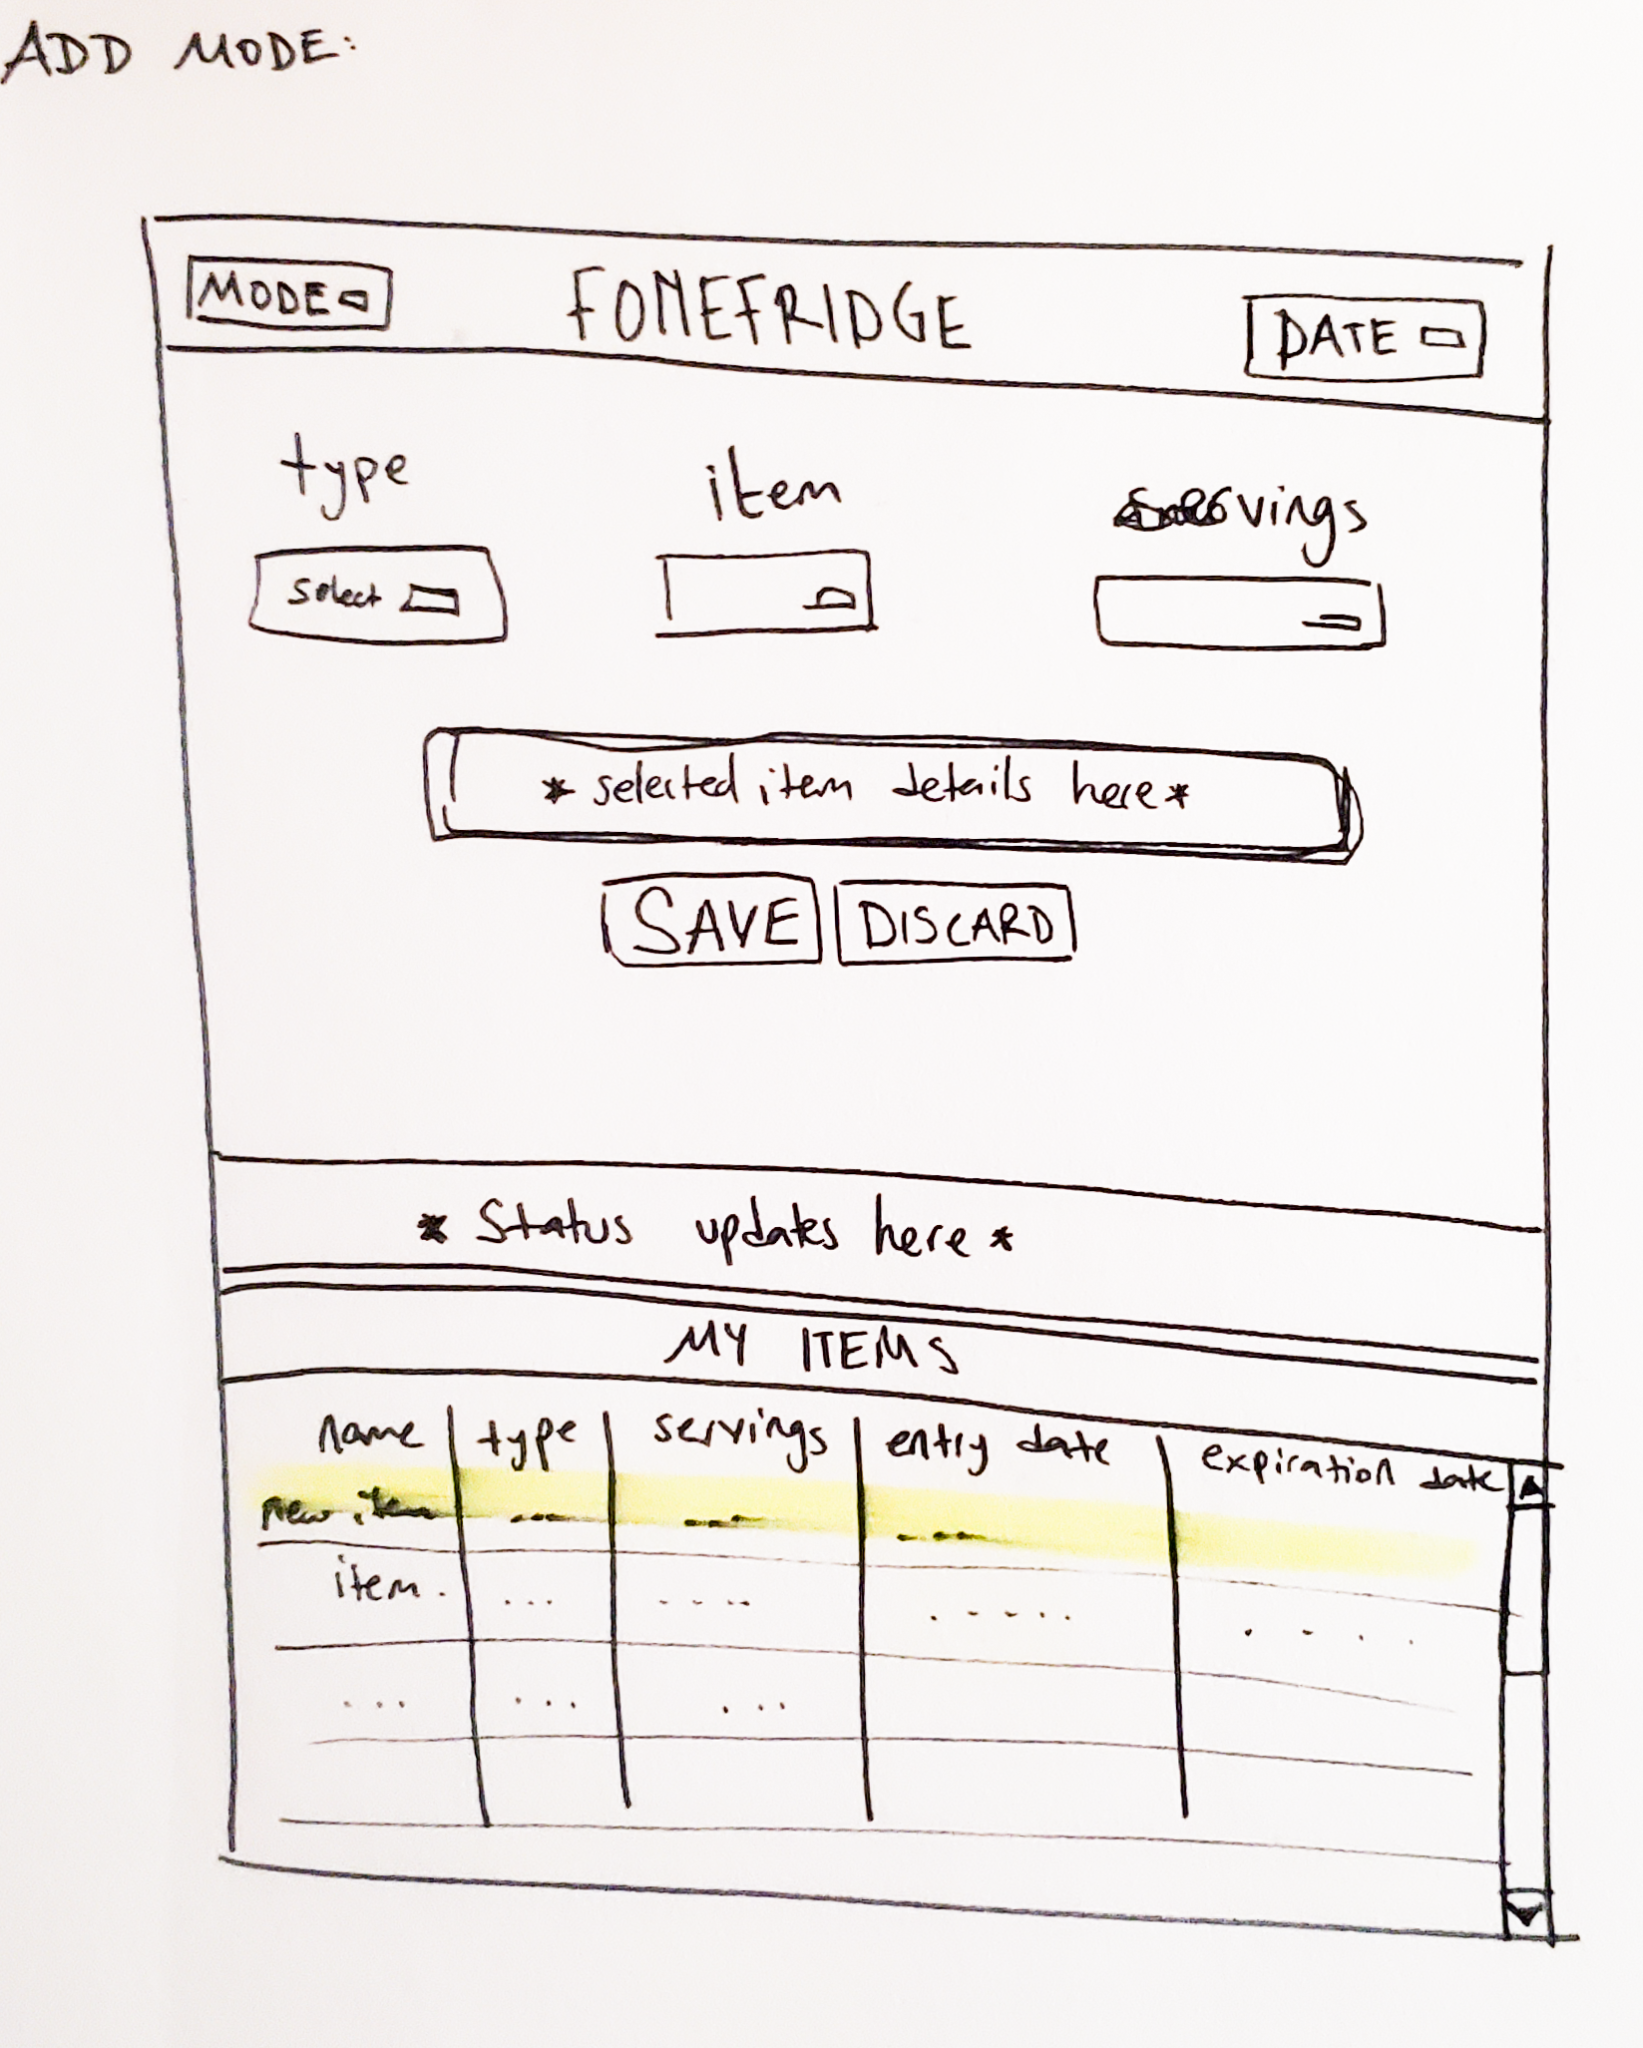 ADD MODE:
MODE
FOMEFRIDGE
DATE
type
item
servings
select
* selected item details here *
SAVE
DISCARD
* Status updates here *
MY ITEMS
name type servings entry date expiration date
new item ... ... ...
item. ... .... ..... ....
... ... ...